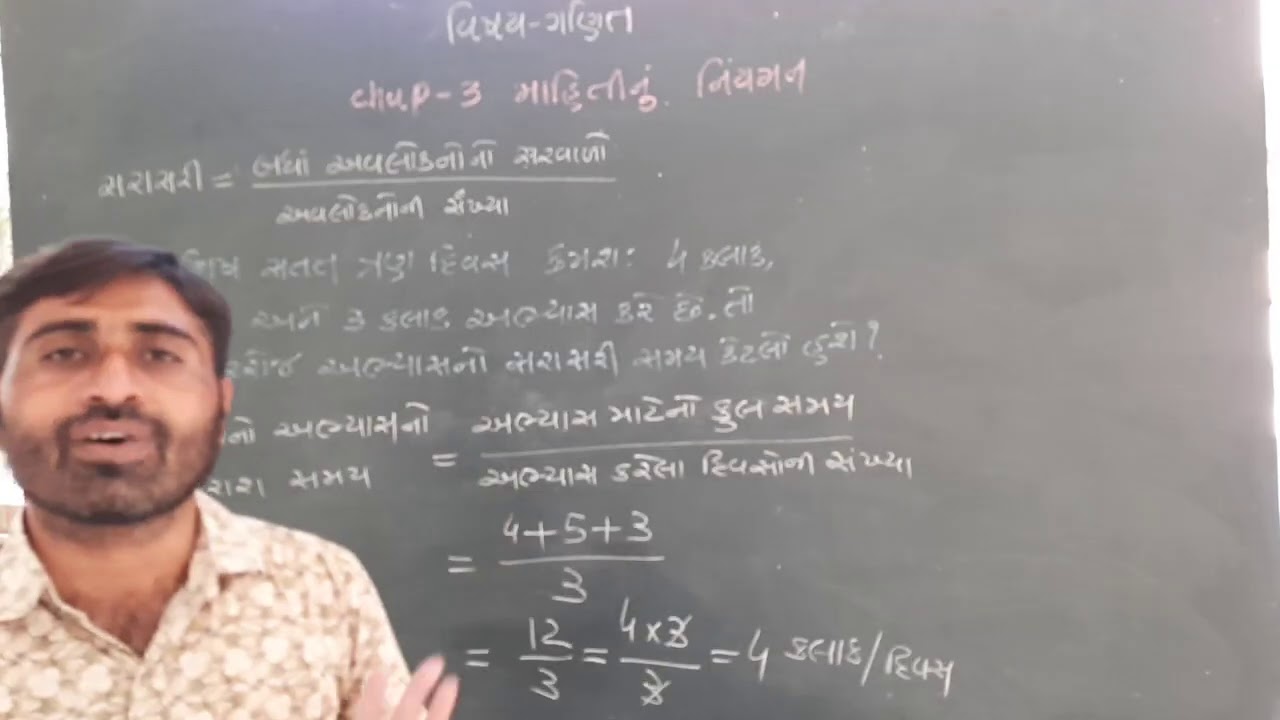 વિષય-ગણિત
chap-3 માહિતીનું નિયમન
સરાસરી = બધાં અવલોકનોનો સરવાળો
અવલોકનોની સંખ્યા
સતત ત્રણ દિવસ ક્રમશઃ 4 કલાક,
અને 3 કલાક અભ્યાસ કરે છે. તો
અભ્યાસનો સરાસરી સમય કેટલો હશે?
અભ્યાસનો = અભ્યાસ માટેનો કુલ સમય
સમય અભ્યાસ કરેલા દિવસોની સંખ્યા
= 4+5+3
3
= 12/3 = 4×3/3 = 4 કલાક/દિવસ